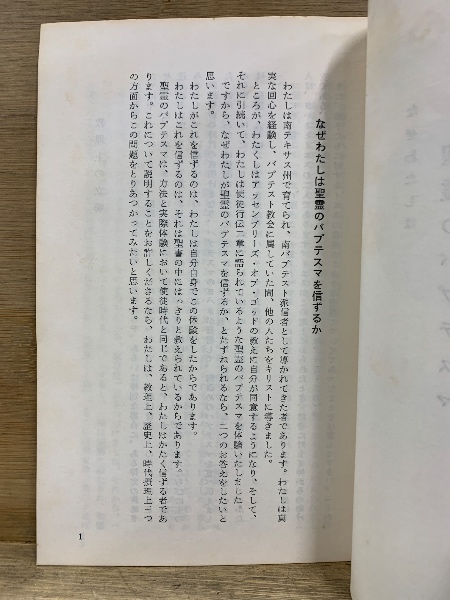 なぜわたしは聖霊のバプテスマを信ずるか
わたしは南テキサス州で育てられ、南バプテスト派信者として導かれてきた者であります。わたしは真
実な回心を経験し、バプテスト教会に属していた間、他の人たちをキリストに導きました。
ところが、わたくしはアッセンブリーズ・オブ・ゴッドの教えに自分が同意するようになり、そして、
それに引続いて、わたしは使徒行伝二章に語られているような聖霊のバプテスマを体験いたしました
ですから、なぜわたしが聖霊のバプテスマを信ずるか、とたずねられるなら、二つのお答えをしたいと
思います。
わたしがこれを信ずるのは、わたしは自分自身でこの体験をしたからであります。
わたしはこれを信ずるのは、それは聖書の中にはっきりと教えられているからであります。
聖霊のバプテスマは、方法と実際体験において使徒時代と同じであると、わたしはかたく信ずる者であ
ります。これについて説明することをお許しくださるなら、わたしは、教理上、歴史上、時代摂理上三つ
の方面からこの問題をとりあつかってみたいと思います。
1